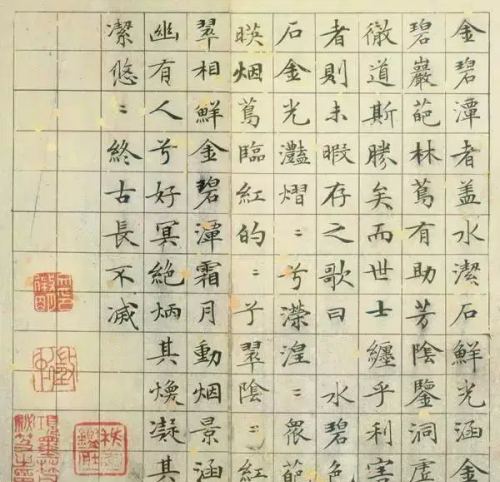 金碧潭者盖水潔石鮮光涵金
碧巖葩林蔦有助芳陰鑒洞虛
徹道斯勝矣而世士纏乎利害
者則未暇存之歌曰 水碧色
石金光灩熠〻兮瀠湟〻眾葩
暎烟蔦臨紅的〻兮翠陰〻紅
翠相鮮金碧潭霜月動烟景涵
幽有人兮好冥絕炳其煥凝其
潔悠〻終古長不滅